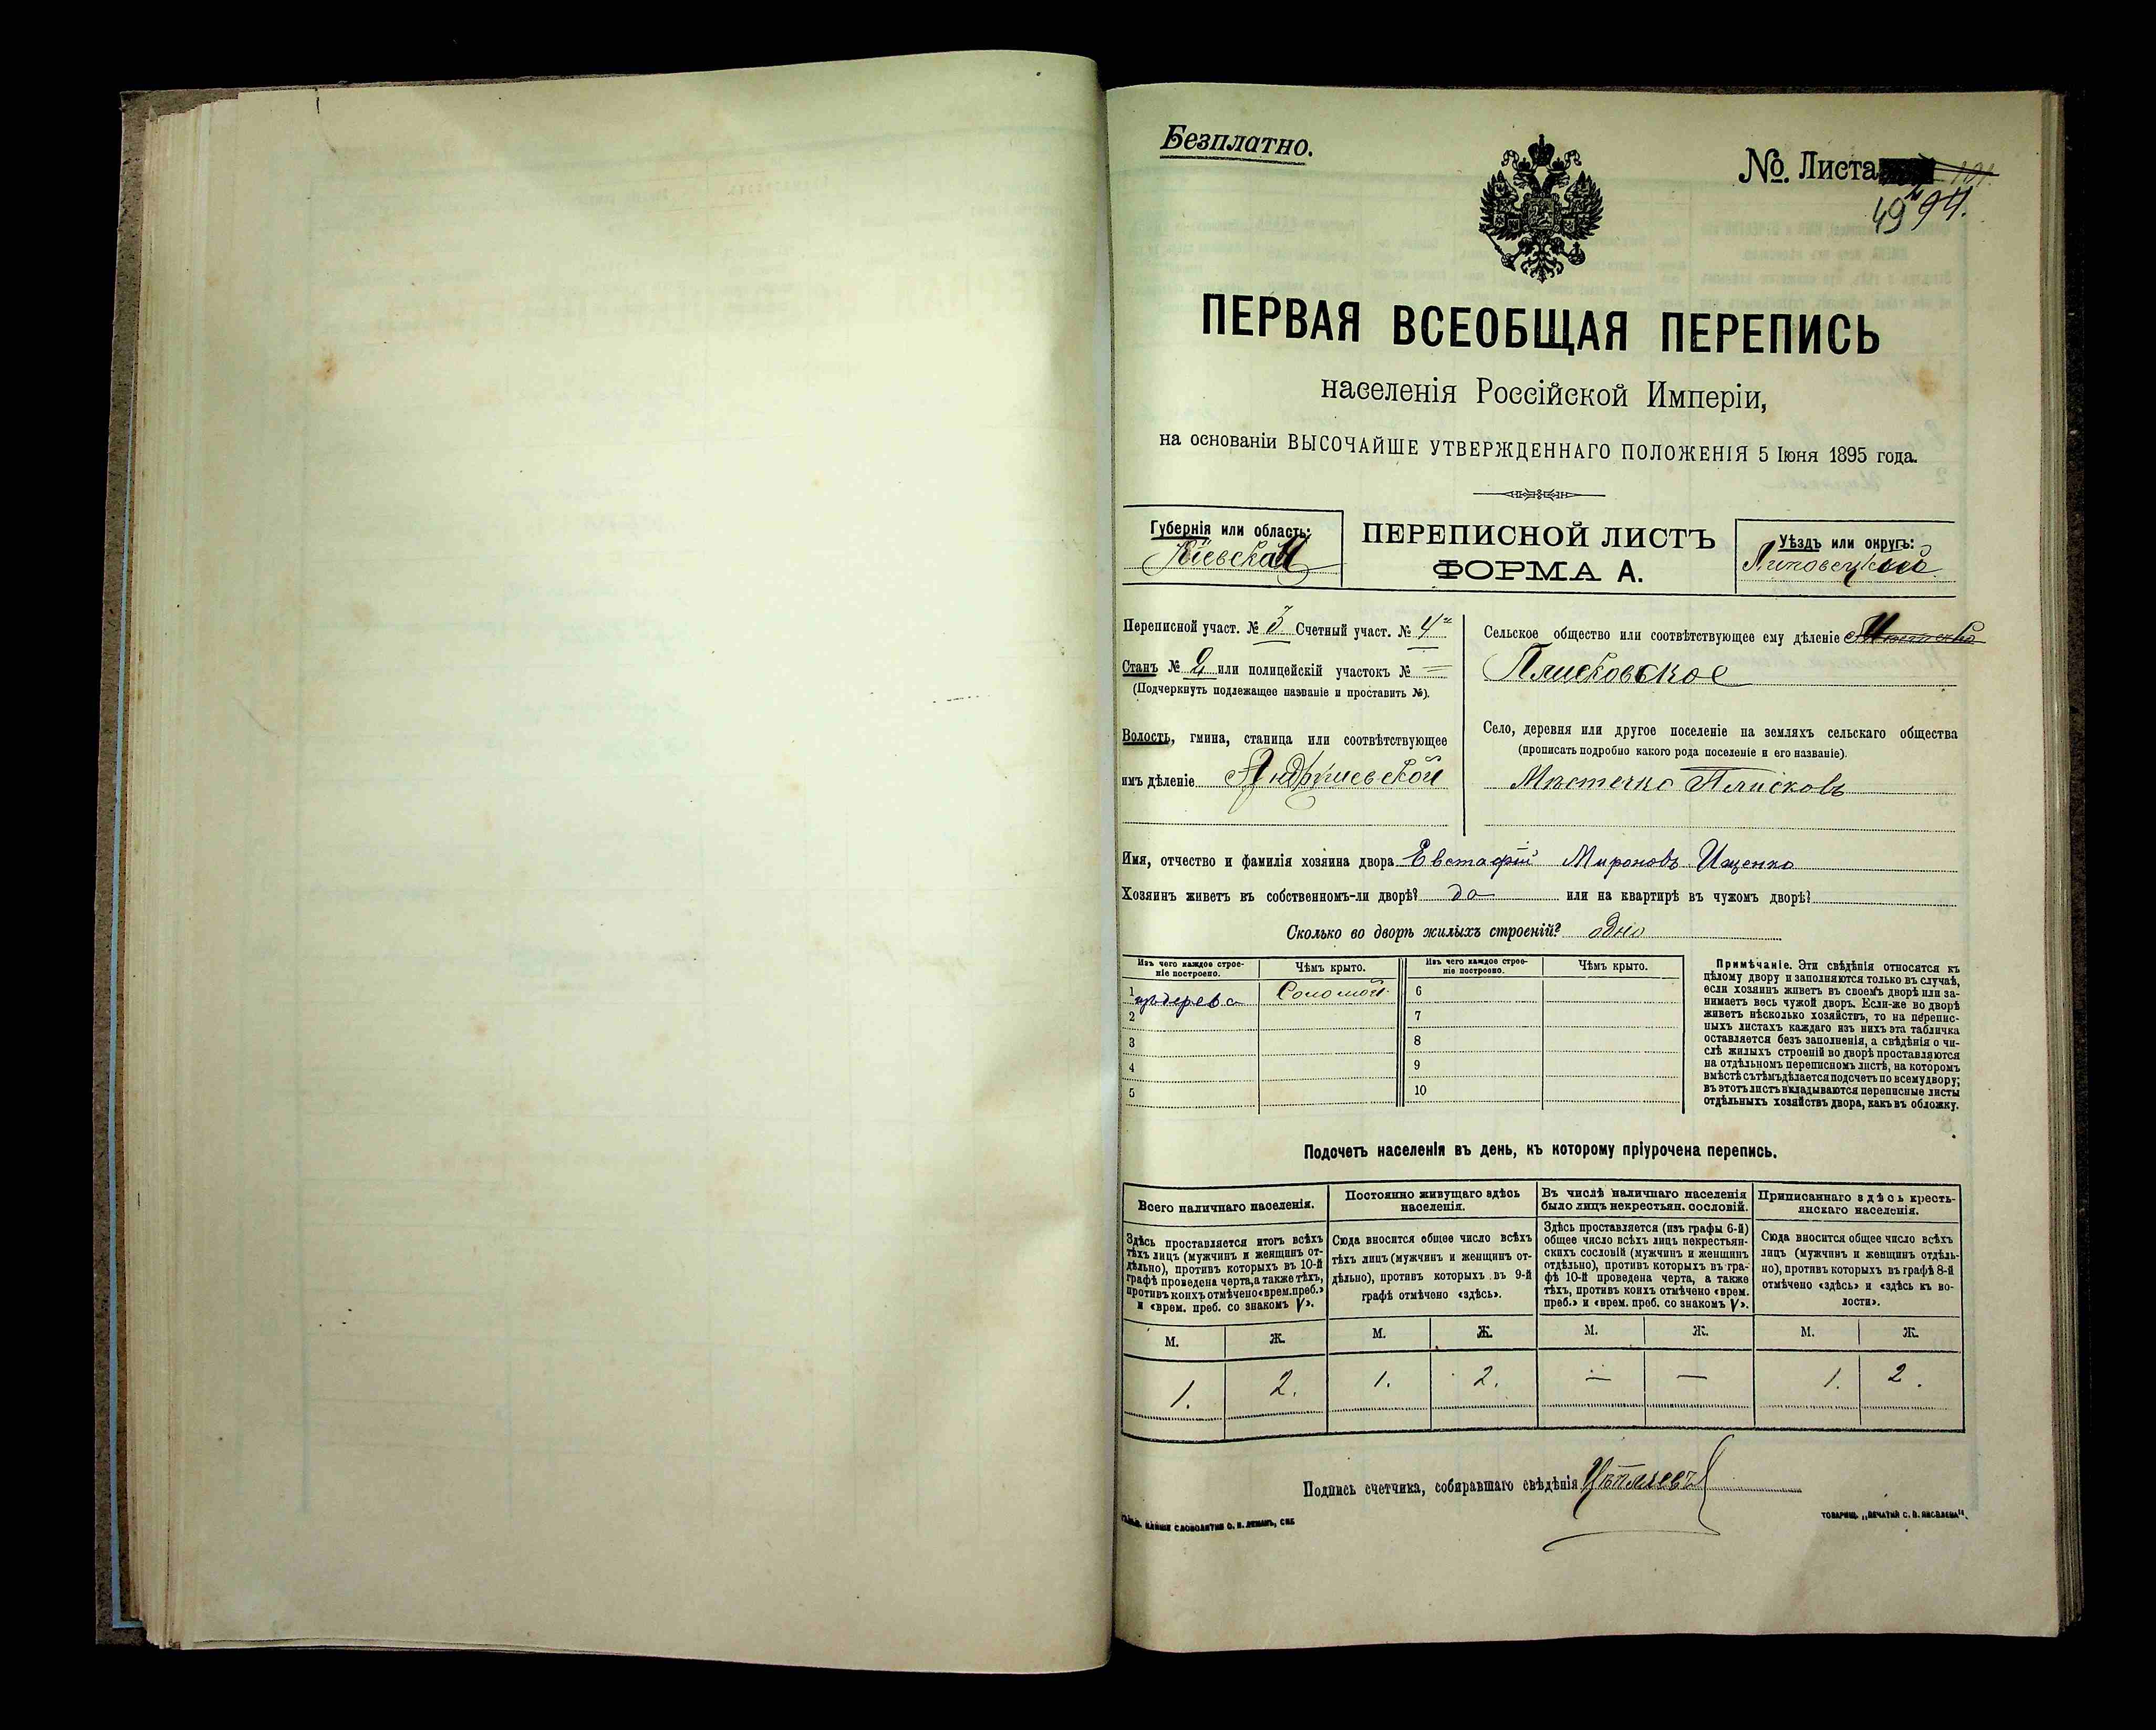 Безплатно.
№ Листа
49 94.
ПЕРВАЯ ВСЕОБЩАЯ ПЕРЕПИСЬ
населенія Россійской Имперіи,
на основаніи ВЫСОЧАЙШЕ УТВЕРЖДЕННАГО ПОЛОЖЕНІЯ 5 Іюня 1895 года.
Губернія или область:
Кіевская
ПЕРЕПИСНОЙ ЛИСТЪ
ФОРМА А.
Уѣздъ или округъ:
Липовецкій
Переписной участ. № 3 Счетный участ. № 4
Станъ № 2 или полицейскій участокъ № =
(Подчеркнуть подлежащее названіе и проставить №).
Волость, гмина, станица или соотвѣтствующее
имъ дѣленіе Андрушевской
Сельское общество или соотвѣтствующее ему дѣленіе
Плисковское
Село, деревня или другое поселеніе на земляхъ сельскаго общества
(прописать подробно какого рода поселеніе и его названіе).
Мѣстечко Плисковъ
Имя, отчество и фамилія хозяина двора Евстафій Мироновъ Ищенко
Хозяинъ живетъ въ собственномъ-ли дворѣ? да или на квартирѣ въ чужомъ дворѣ?
Сколько во дворѣ жилыхъ строеній? одно
Изъ чего каждое строе-
ніе построено.
Чѣмъ крыто.
Изъ чего каждое строе-
ніе построено.
Чѣмъ крыто.
1 изъ дерева Соломой 6
2 7
3 8
4 9
5 10
Примѣчаніе. Эти свѣдѣнія относятся къ
цѣлому двору и заполняются только въ случаѣ,
если хозяинъ живетъ въ своемъ дворѣ или за-
нимаетъ весь чужой дворъ. Если-же во дворѣ
живетъ нѣсколько хозяйствъ, то на перепис-
ныхъ листахъ каждаго изъ нихъ эта табличка
оставляется безъ заполненія, а свѣдѣнія о чи-
слѣ жилыхъ строеній во дворѣ проставляются
на отдѣльномъ переписномъ листѣ, на которомъ
вмѣстѣ съ тѣмъ дѣлается подсчетъ по всему двору;
въ этотъ листъ вкладываются переписные листы
отдѣльныхъ хозяйствъ двора, какъ въ обложку.
Подсчетъ населенія въ день, къ которому пріурочена перепись.
Всего наличнаго населенія.
Здѣсь проставляется итогъ всѣхъ
тѣхъ лицъ (мужчинъ и женщинъ от-
дѣльно), противъ которыхъ въ 10-й
графѣ проведена черта, а также тѣхъ,
противъ коихъ отмѣчено «врем. преб.»
и «врем. преб. со знакомъ V».
Постоянно живущаго здѣсь
населенія.
Сюда вносится общее число всѣхъ
тѣхъ лицъ (мужчинъ и женщинъ от-
дѣльно), противъ которыхъ въ 9-й
графѣ отмѣчено «здѣсь».
Въ числѣ наличнаго населенія
было лицъ некрестьян. сословій.
Здѣсь проставляется (изъ графы 6-й)
общее число всѣхъ лицъ некрестьян-
скихъ сословій (мужчинъ и женщинъ
отдѣльно), противъ которыхъ въ гра-
фѣ 10-й проведена черта, а также
тѣхъ, противъ коихъ отмѣчено «врем.
преб.» и «врем. преб. со знакомъ V».
Приписаннаго здѣсь кресть-
янскаго населенія.
Сюда вносится общее число всѣхъ
лицъ (мужчинъ и женщинъ отдѣль-
но), противъ которыхъ въ графѣ 8-й
отмѣчено «здѣсь» и «здѣсь къ во-
лости».
М. Ж. М. Ж. М. Ж. М. Ж.
1. 2. 1. 2. — — 1. 2.
Подпись счетчика, собиравшаго свѣдѣнія
ТОВАРИЩ. „ПЕЧАТНИ С. П. ЯКОВЛЕВА".